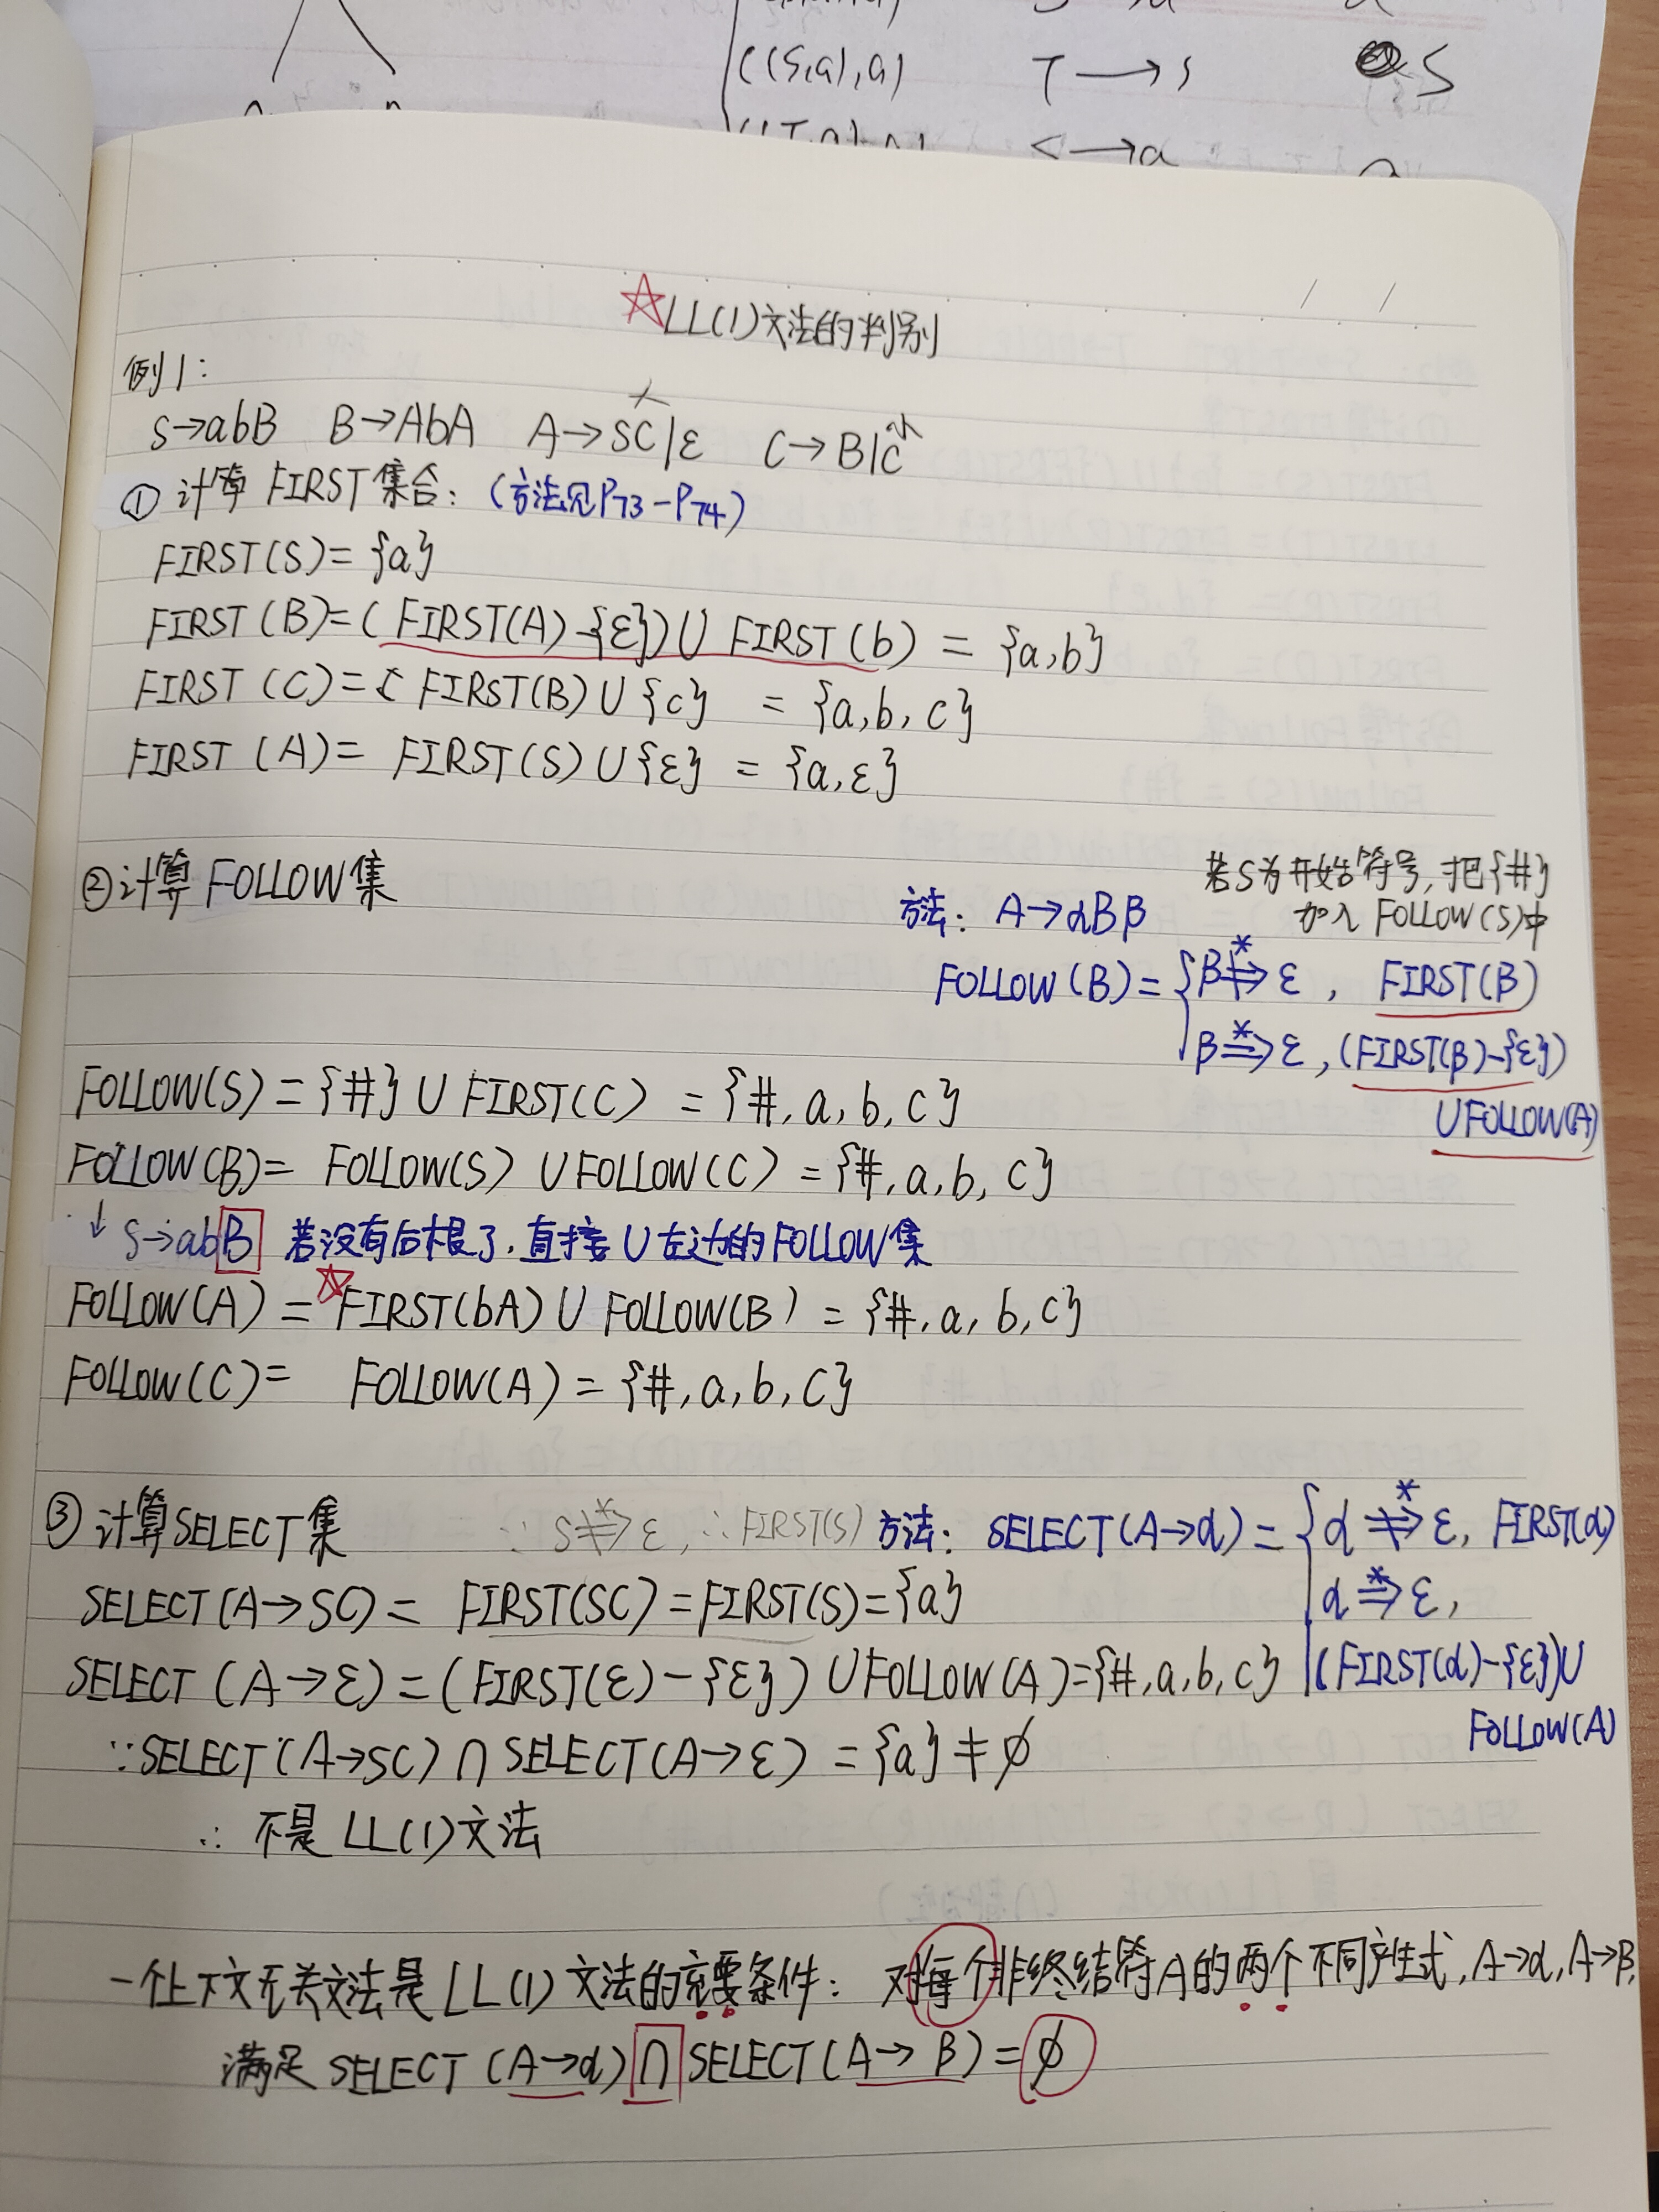 ((S,a),a) T→S S
<→a
☆LL(1)文法的判别
例1:
S→abB B→AbA A→SC|ε C→B|c
① 计算 FIRST集合: (方法见P73-P74)
FIRST(S)={a}
FIRST(B)=(FIRST(A)-{ε})∪FIRST(b) = {a,b}
FIRST(C)= FIRST(B)∪{c} = {a,b,c}
FIRST(A)= FIRST(S)∪{ε} = {a,ε}
②计算FOLLOW集
若S为开始符号,把{#}
加入FOLLOW(S)中
方法: A→αBβ
FOLLOW(B)={β*⇏ε, FIRST(β)
β*⇒ε,(FIRST(β)-{ε})
∪FOLLOW(A)
FOLLOW(S)={#}∪FIRST(C) = {#,a,b,c}
FOLLOW(B)= FOLLOW(S)∪FOLLOW(C)={#,a,b,c}
↓ S→abB 若没有后根了,直接∪左边的FOLLOW集
FOLLOW(A) = ☆FIRST(bA)∪FOLLOW(B) = {#,a,b,c}
FOLLOW(C)= FOLLOW(A)={#,a,b,c}
③ 计算SELECT集 ∵S*⇏ε,∴FIRST(S) 方法: SELECT(A→α)={α*⇏ε, FIRST(α)
α*⇒ε,
(FIRST(α)-{ε})∪
FOLLOW(A)
SELECT(A→SC)= FIRST(SC)=FIRST(S)={a}
SELECT(A→ε)=(FIRST(ε)-{ε})∪FOLLOW(A)={#,a,b,c}
∵SELECT(A→SC)∩SELECT(A→ε) = {a}≠∅
∴ 不是LL(1)文法
一个上下文无关文法是LL(1)文法的充要条件: 对每个非终结符A的两个不同产生式,A→α,A→β,
满足SELECT(A→α)∩SELECT(A→β)=∅